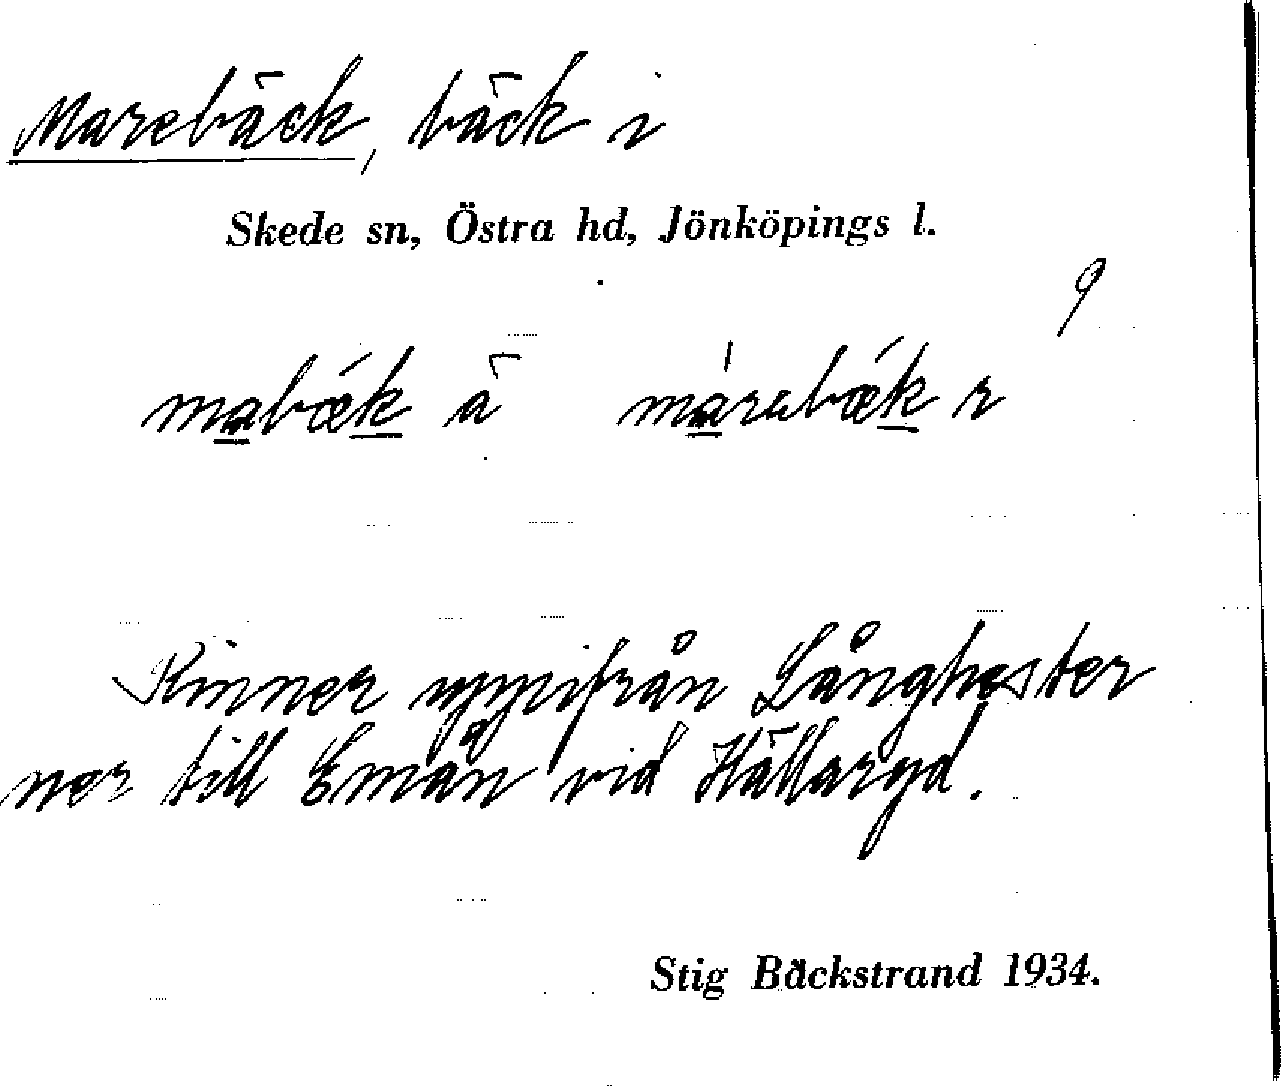 Marebäck, bäck i
Skede sn, Östra hd, Jönköpings l.
9
mabǽk ä márebǽk r
Rinner uppifrån Långhester
ner till Emån vid Hällaryd.
Stig Bäckstrand 1934.